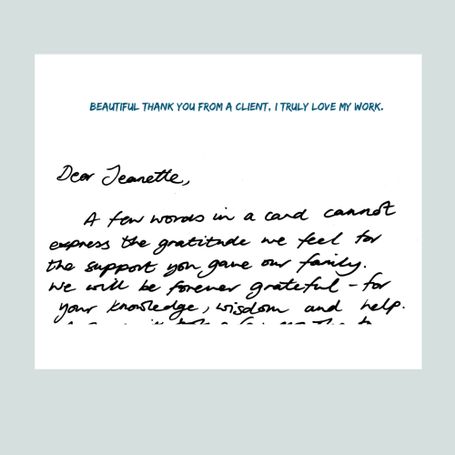 BEAUTIFUL THANK YOU FROM A CLIENT, I TRULY LOVE MY WORK.
Dear Jeanette,
A few words in a card cannot
express the gratitude we feel for
the support you gave our family.
We will be forever grateful - for
your knowledge, wisdom and help.